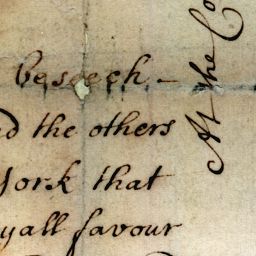 beseech -
d the others
York that
yall favour
At the Co